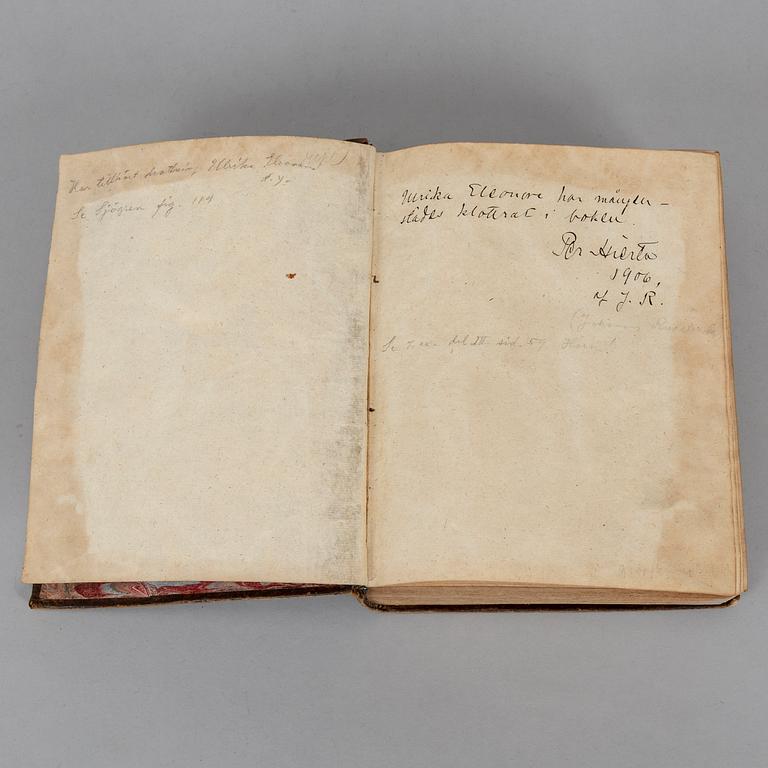 Har tillhört drottning Ulrika Eleonora
d. y.
Se Sjögren fig. 114
Ulrika Eleonore har mången-
städes klottrat i boken.
Per Hierta
1906,
af J. R.
(Johannes
Se del III sid. 59